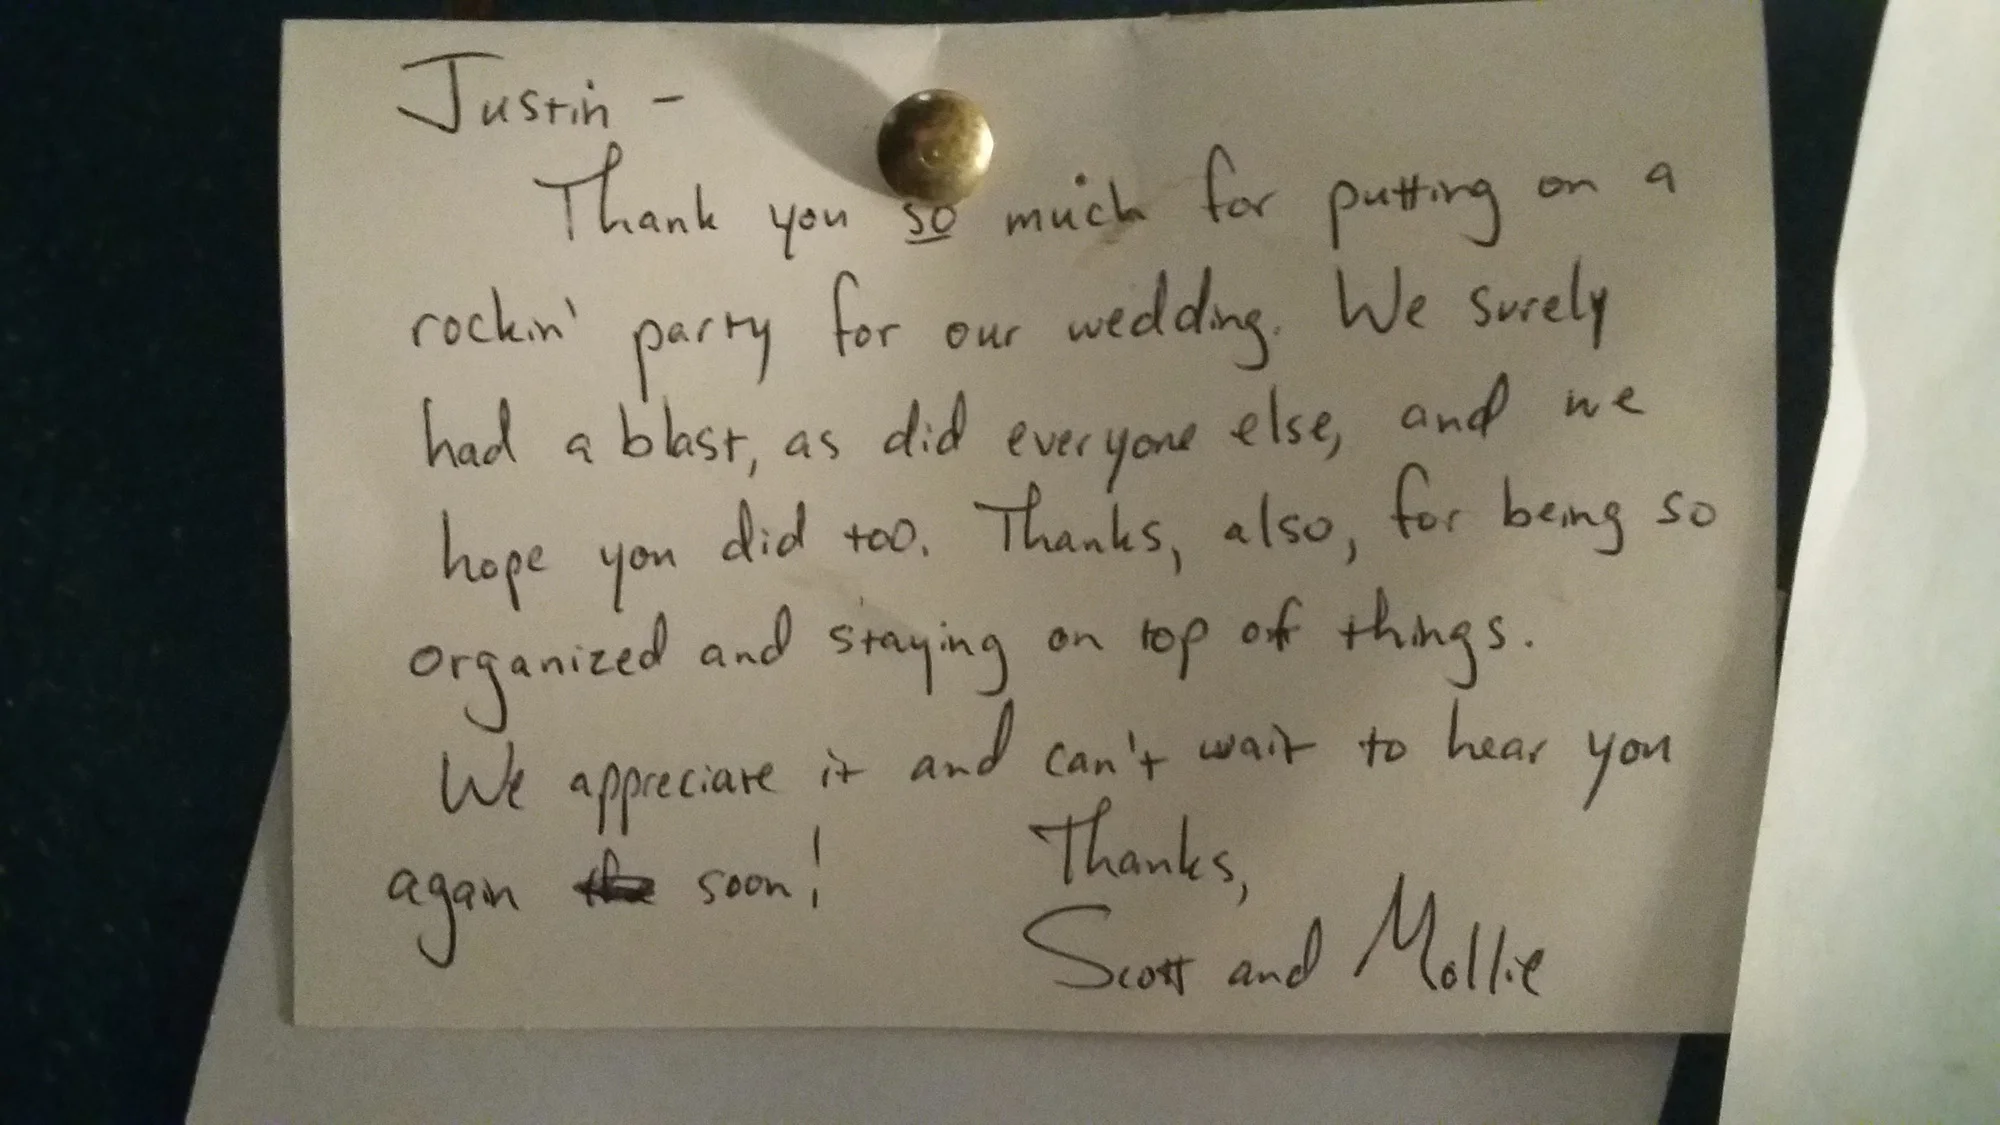 Justin -
Thank you so much for putting on a
rockin' party for our wedding. We surely
had a blast, as did everyone else, and we
hope you did too. Thanks, also, for being so
organized and staying on top of things.
We appreciate it and can't wait to hear you
again soon!
Thanks,
Scott and Mollie